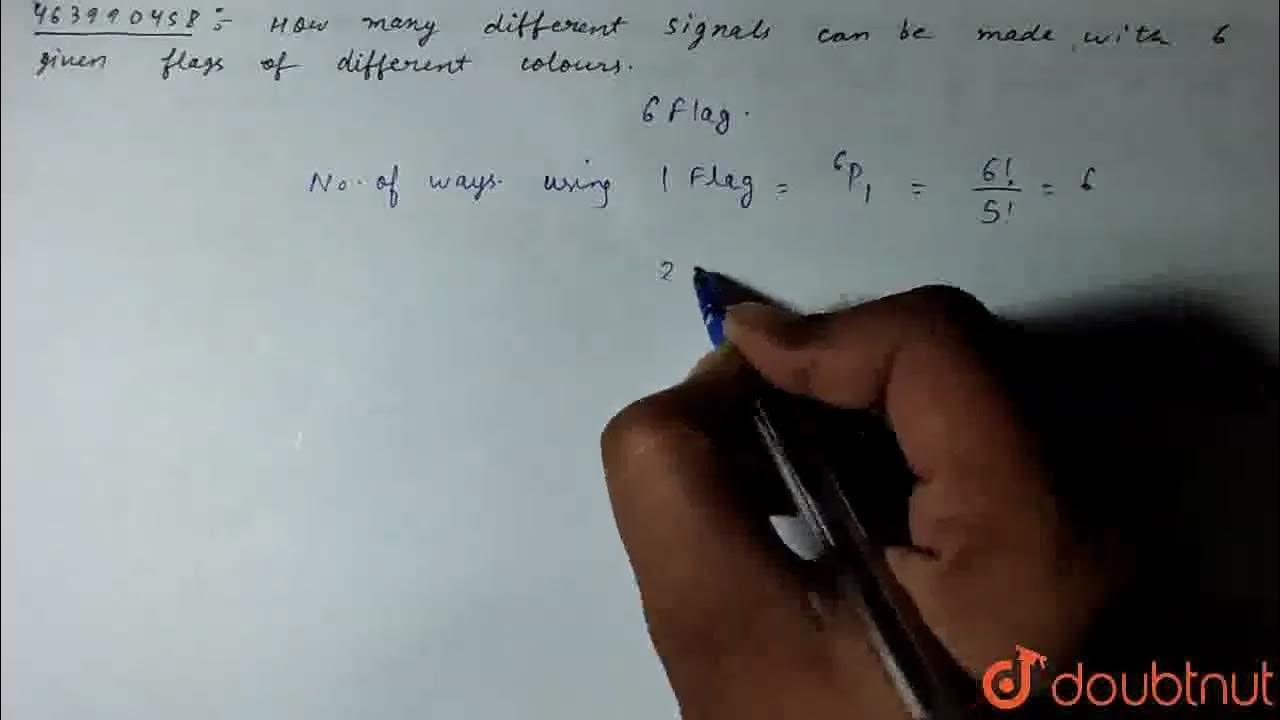 463990458 :- How many different signals can be made with 6
given flags of different colours.
6 Flag.
No. of ways using 1 Flag = ⁶P₁ = 6!/5! = 6
2
doubtnut